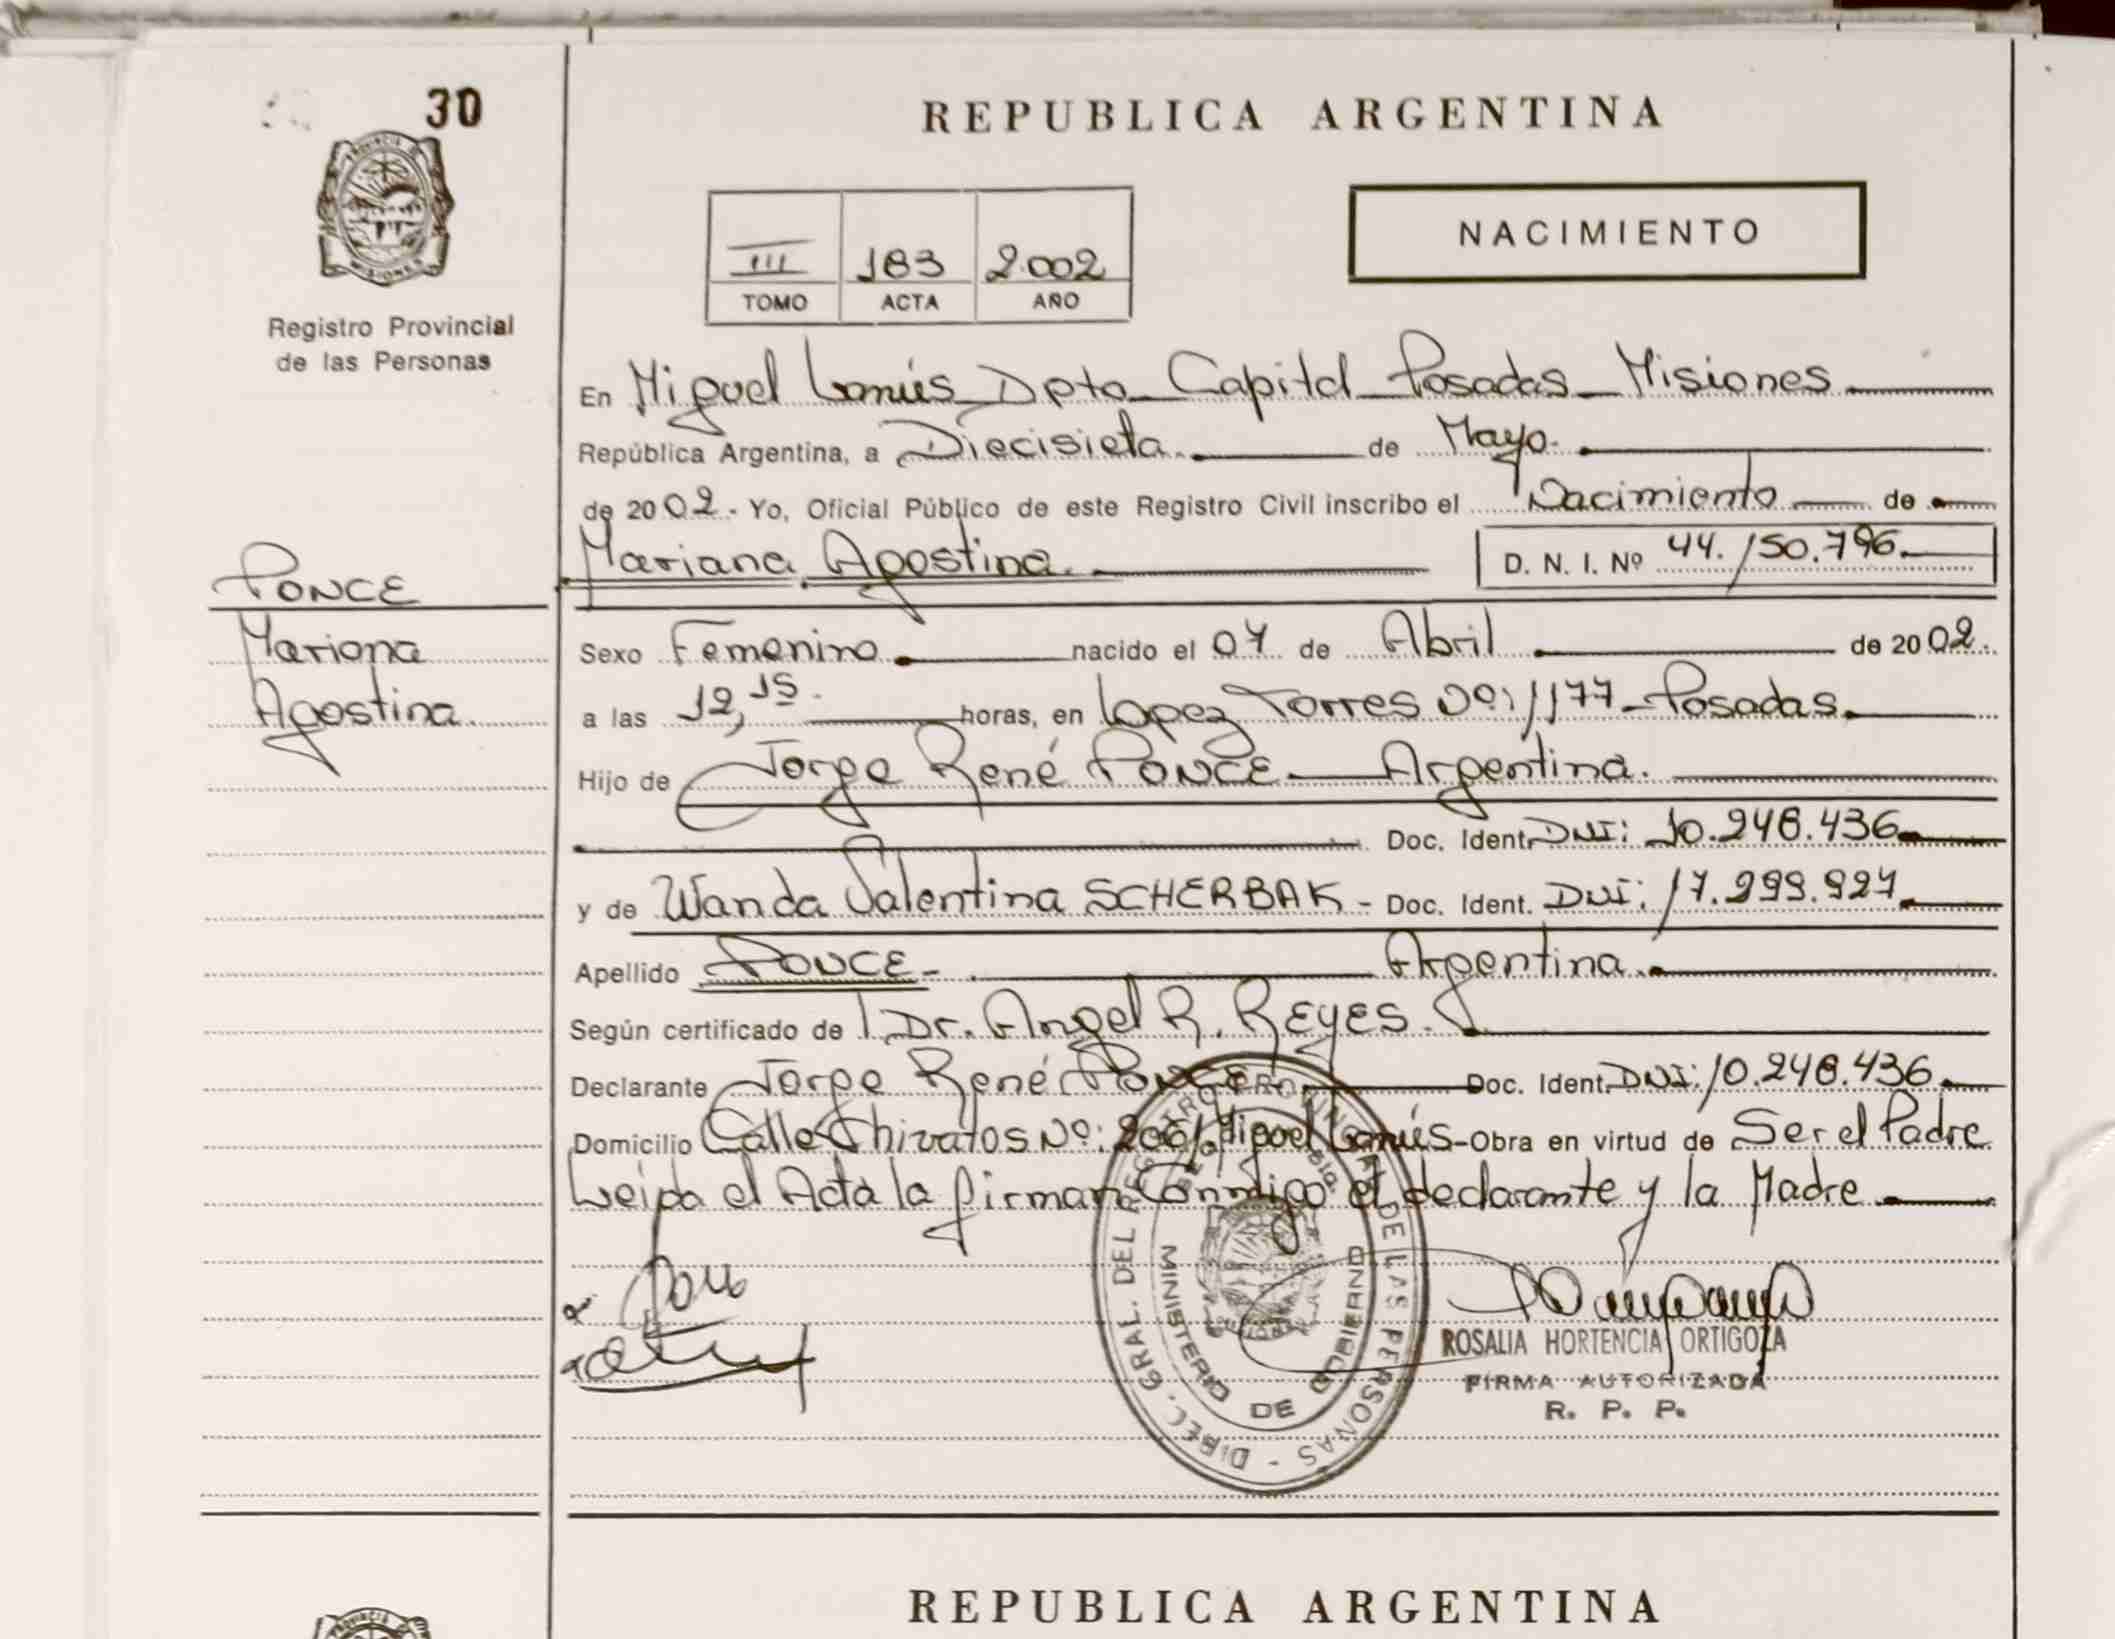 30
REPUBLICA ARGENTINA
NACIMIENTO
III 183 2.002
TOMO ACTA AÑO
Registro Provincial
de las Personas
En Miguel Lanús Dpto Capital Posadas Misiones
República Argentina, a Diecisiete de Mayo.
de 2002. Yo, Oficial Público de este Registro Civil inscribo el Nacimiento de
Mariana Agostina. D. N. I. Nº 44.150.796.
PONCE
Mariana
Agostina.
Sexo Femenino nacido el 07 de Abril de 2002.
a las 12,15. horas, en Lopez Torres Nº: 1177 - Posadas.
Hijo de Jorge René PONCE Argentina.
Doc. Ident. DNI: 10.248.436
y de Wanda Valentina SCHERBAK - Doc. Ident. DNI: 17.299.927
Apellido PONCE - Argentina.
Según certificado de Dr. Angel R. REYES.
Declarante Jorge René Ponce Doc. Ident. DNI: 10.248.436.
Domicilio Calle Chivatos Nº: Miguel Lanús - Obra en virtud de Ser el Padre
Leida el Acta la firman Conmigo el declarante y la Madre
DIREC. GRAL. DEL REGISTRO PROVINCIAL DE LAS PERSONAS -
MINISTERIO DE GOBIERNO
ROSALIA HORTENCIA ORTIGOZA
FIRMA AUTORIZADA
R. P. P.
REPUBLICA ARGENTINA